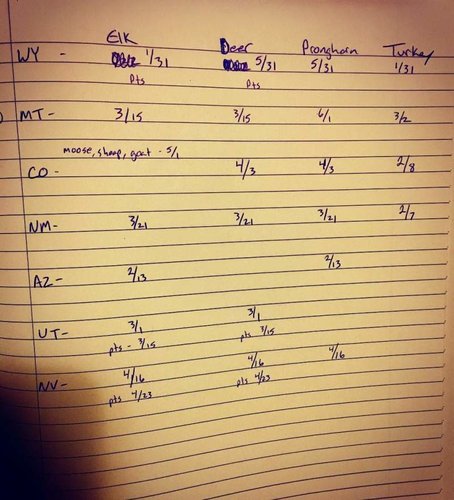 Elk Deer Pronghorn Turkey
WY - 1/31 5/31 5/31 1/31
Pts Pts
MT - 3/15 3/15 6/1 3/2
moose, sheep, goat - 5/1
CO - 4/3 4/3 2/8
NM - 3/21 3/21 3/21 2/7
AZ - 2/13 2/13
UT - 3/1 3/1
pts - 3/15 pts 3/15
NV - 4/16 4/16 4/16
pts 4/23 pts 4/23